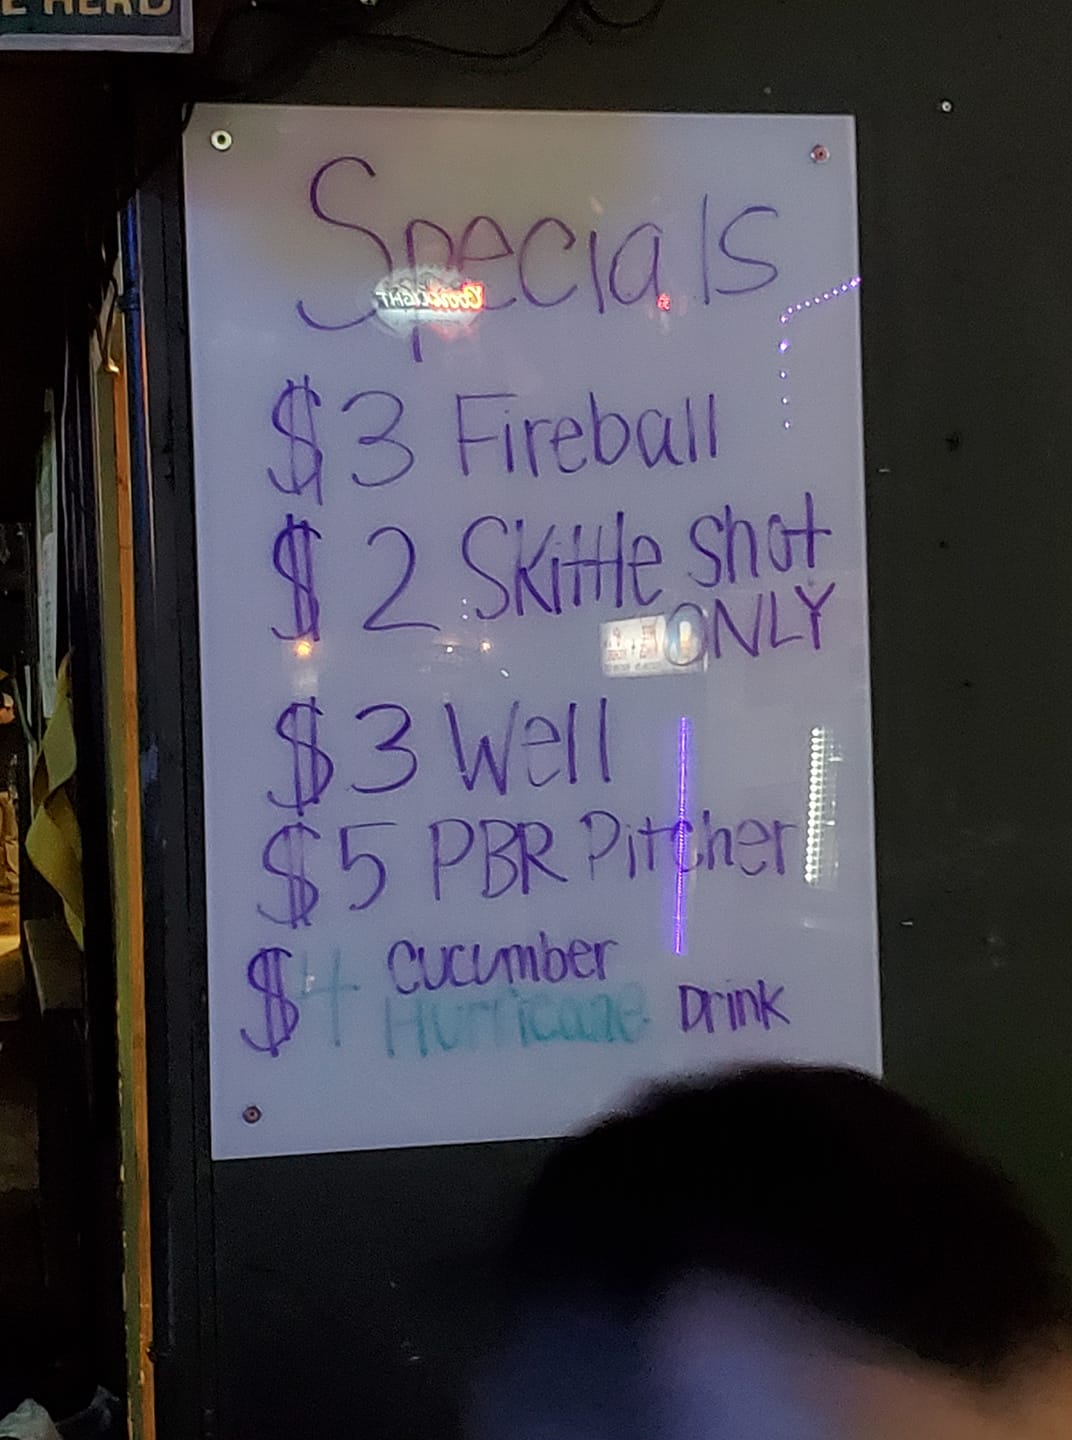 E HERD
Specials
$3 Fireball
$2 Skittle Shot
ONLY
$3 Well
$5 PBR Pitcher
$4 Cucumber
Hurricane Drink